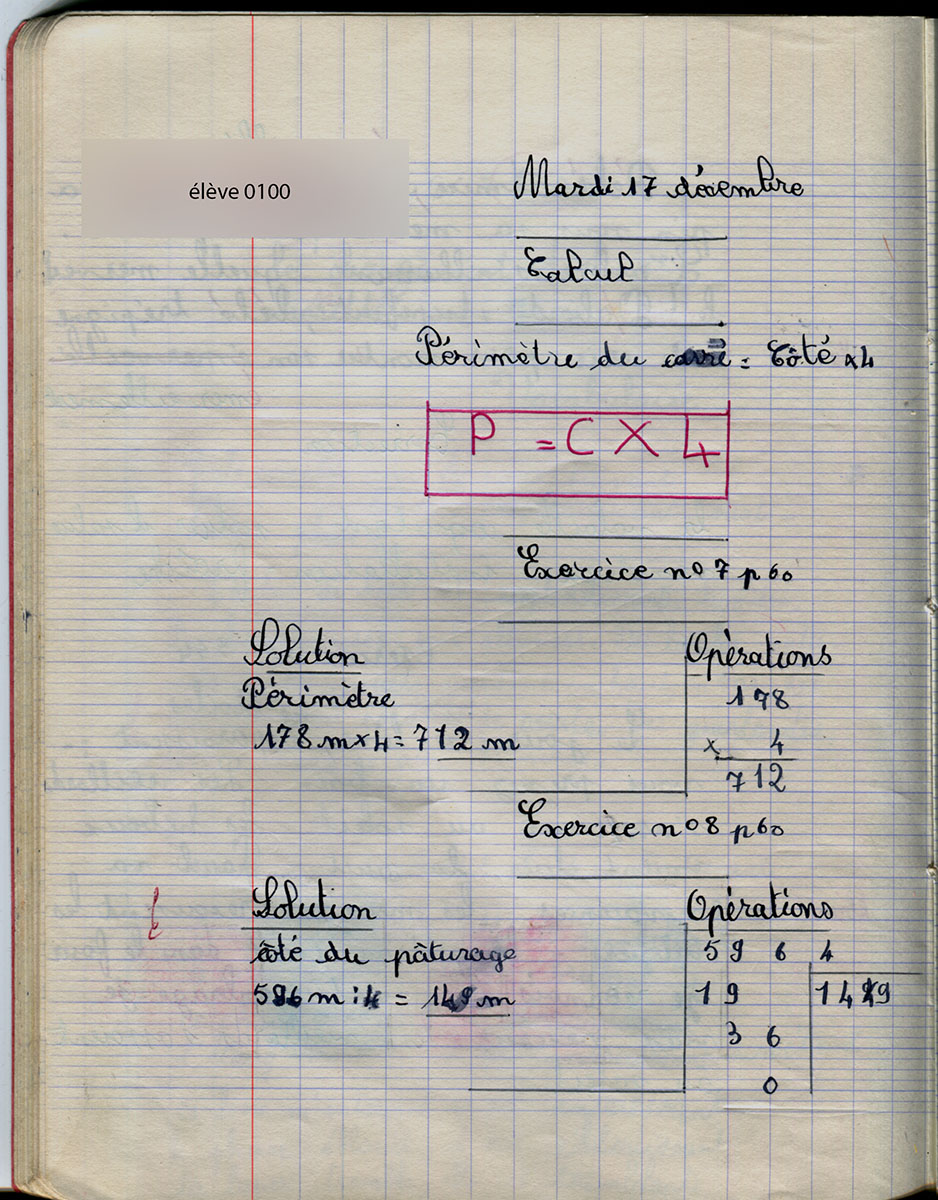 élève 0100
Mardi 17 décembre
Calcul
Périmètre du carré = Côté x4
P = C X 4
Exercice no 7 p 60
Solution
Opérations
Périmètre
178
178 m x 4 = 712 m
x 4
712
Exercice no 8 p 60
Solution
Opérations
côté du pâturage
596 4
596 m : 4 = 149 m
19 149
36
0